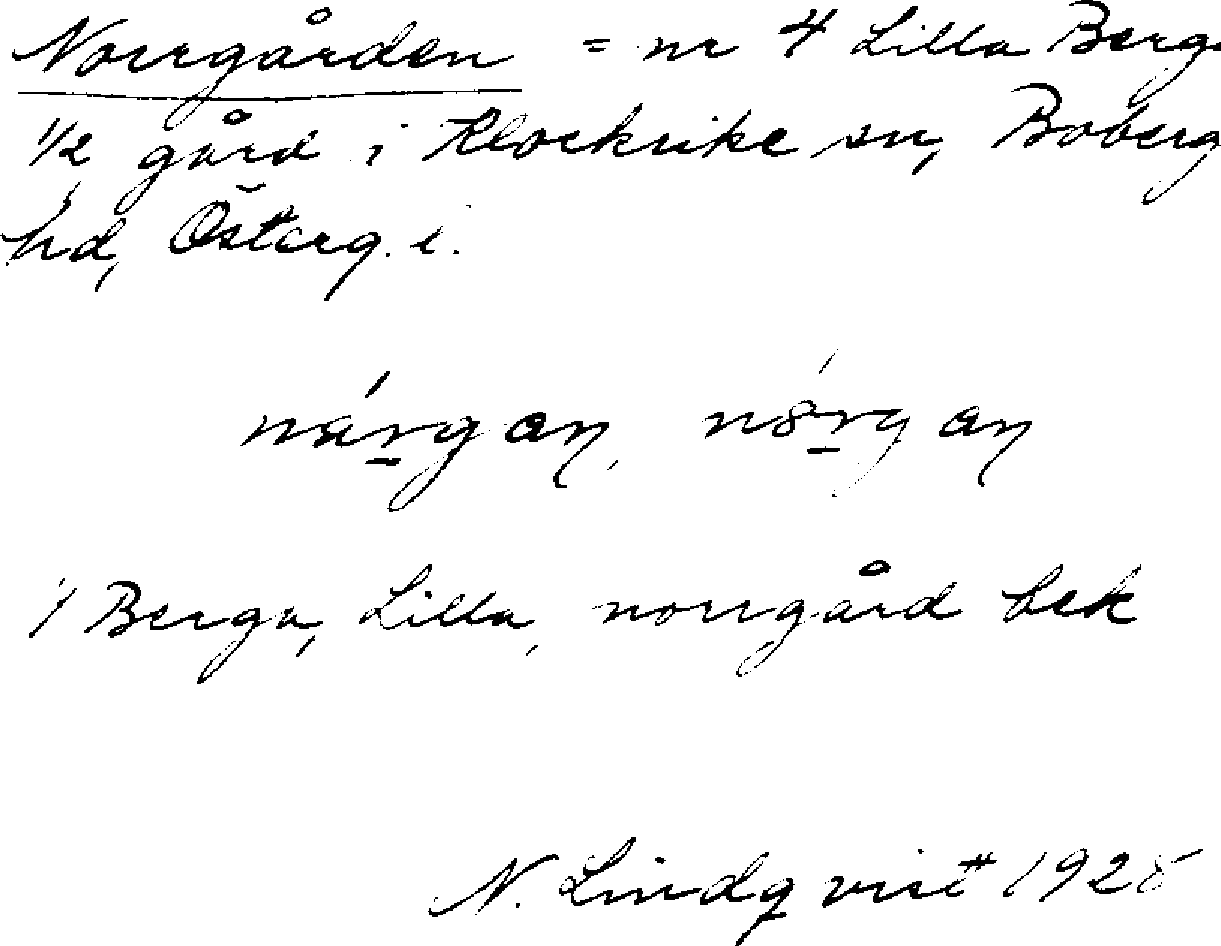 Norrgården = nr 4 Lilla Berga
1/2 gård i Klockrike sn, Boberg
hd, Österg. i.
1/ Berga, Lilla, norrgård bek
N. Lindqvist 1928